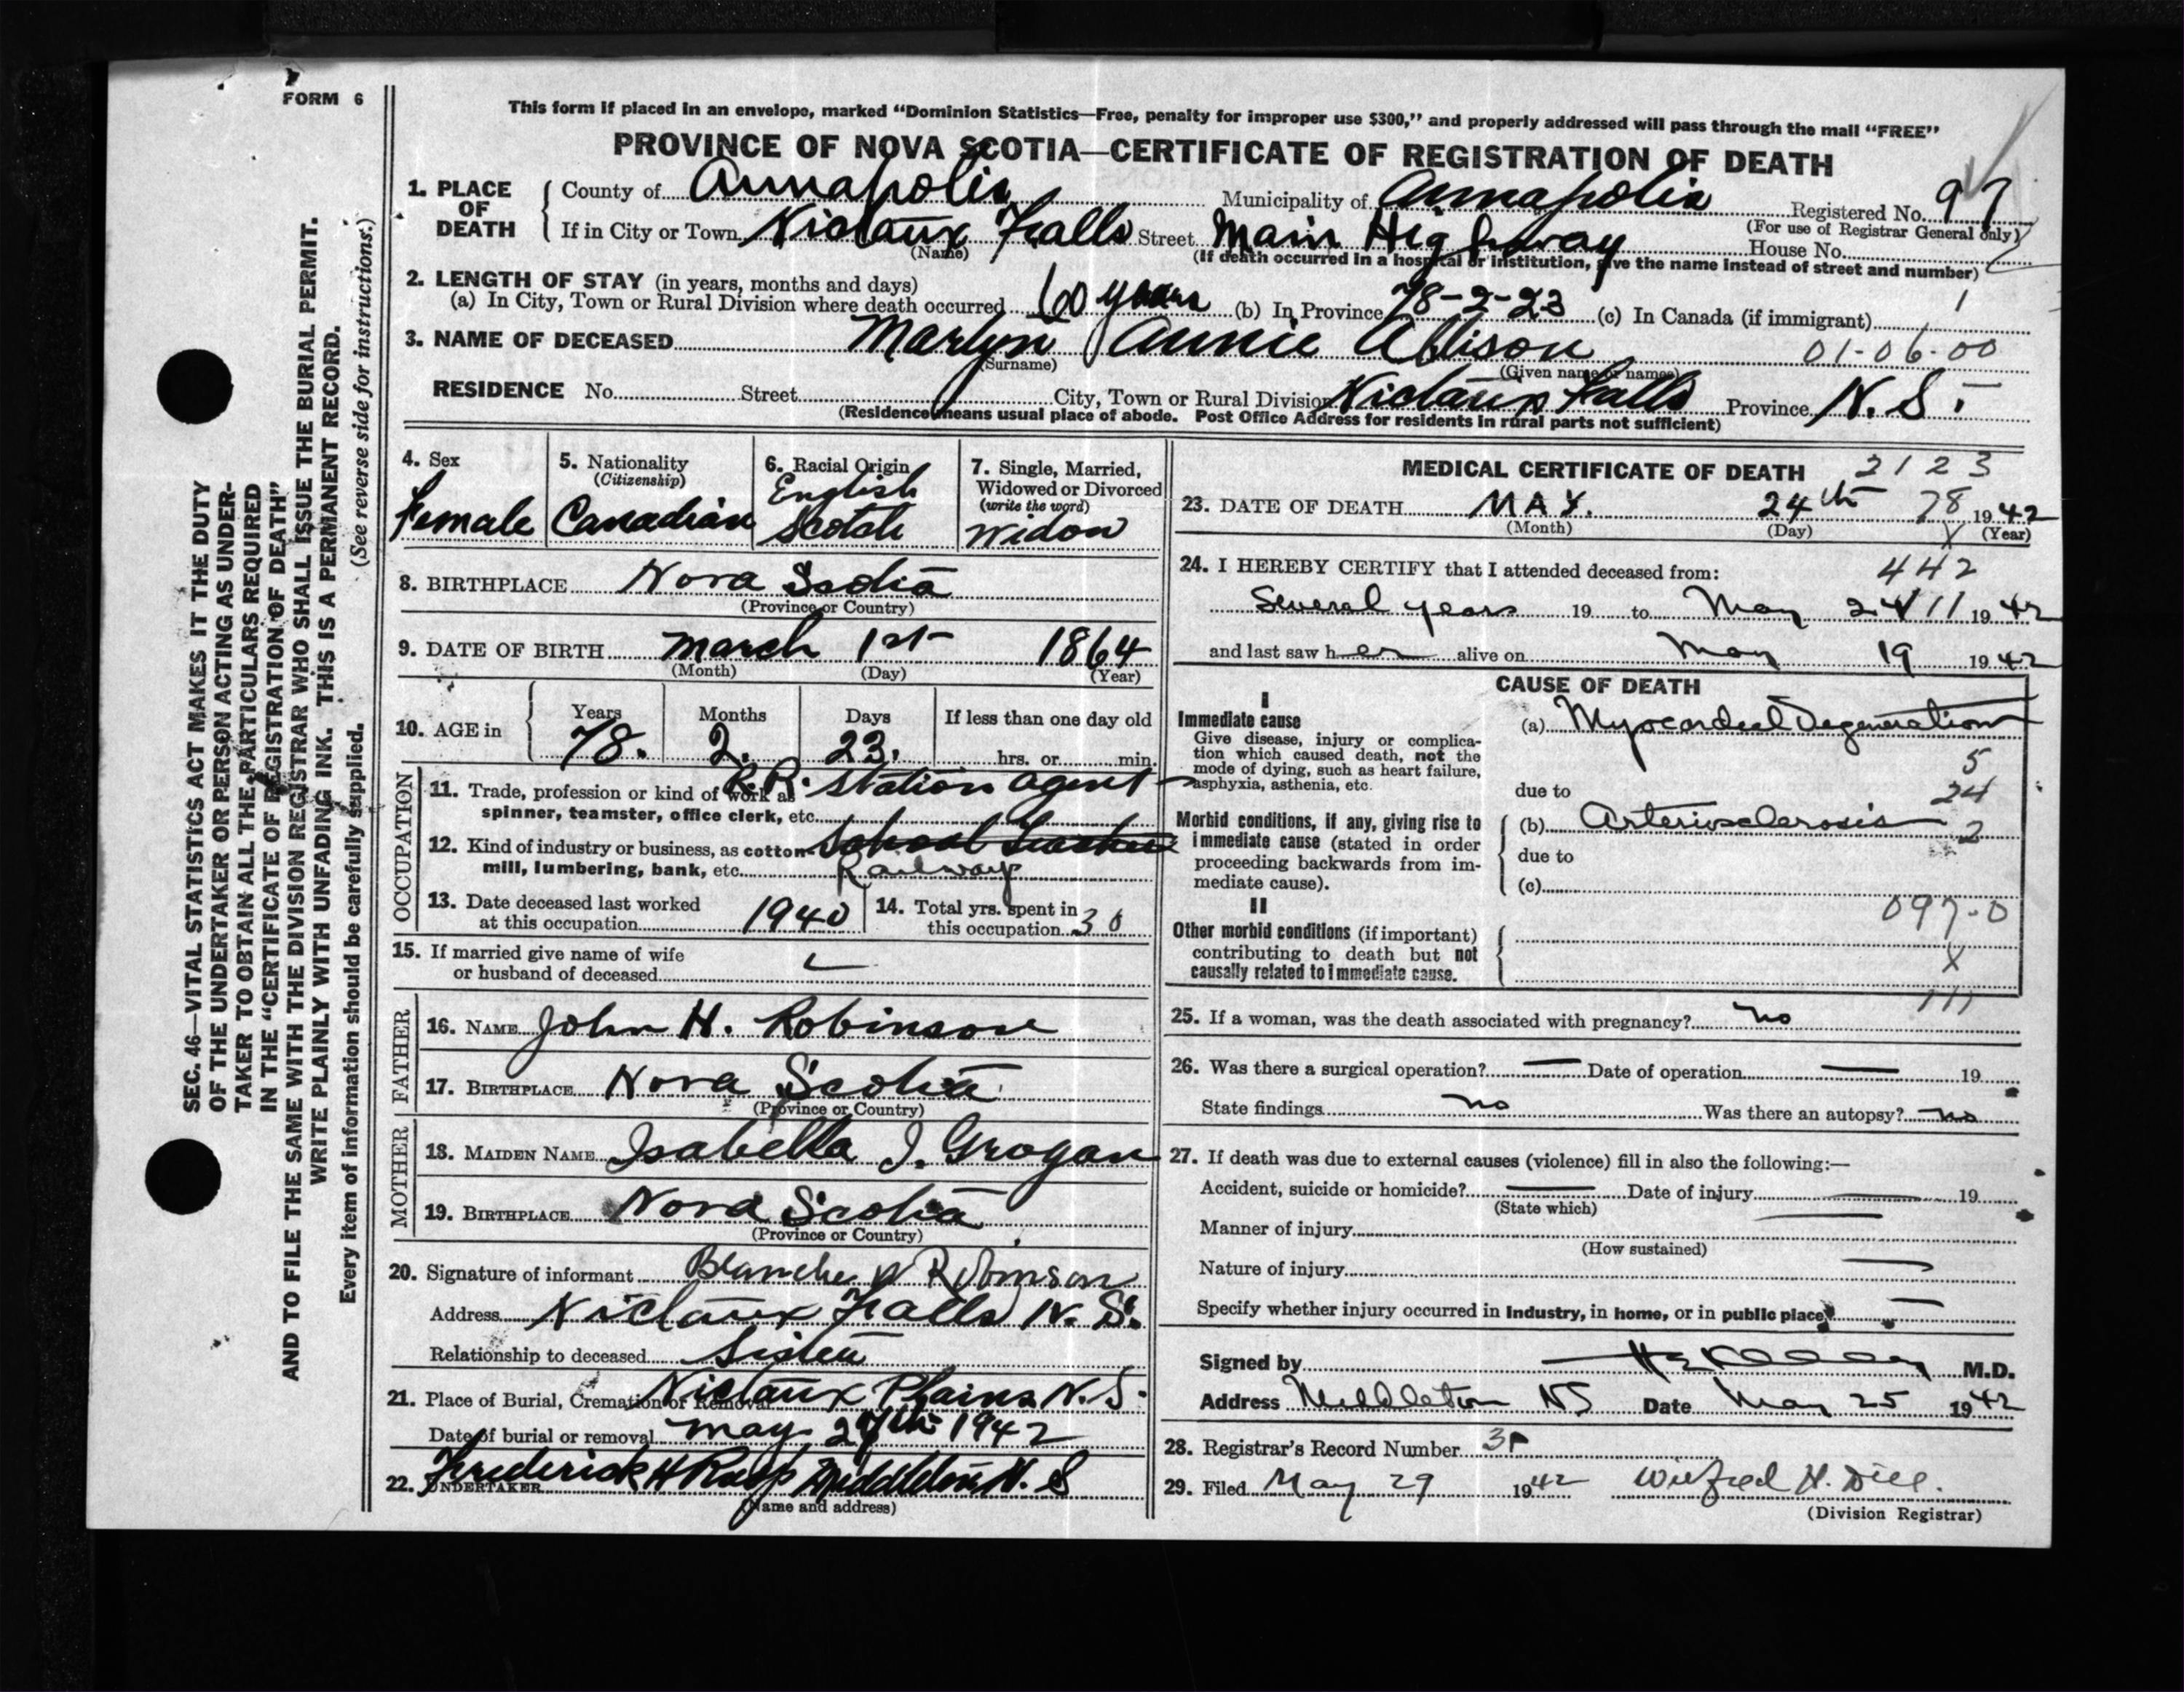 FORM 6
This form if placed in an envelope, marked "Dominion Statistics—Free, penalty for improper use $300," and properly addressed will pass through the mail "FREE"
PROVINCE OF NOVA SCOTIA—CERTIFICATE OF REGISTRATION OF DEATH
1. PLACE OF DEATH County of Annapolis Municipality of Annapolis Registered No. 97
(For use of Registrar General only)
If in City or Town Nictaux Falls Street Main Highway House No.
(Name) (If death occurred in a hospital or institution, give the name instead of street and number)
2. LENGTH OF STAY (in years, months and days)
(a) In City, Town or Rural Division where death occurred 60 years (b) In Province 78-2-23 (c) In Canada (if immigrant) 1
3. NAME OF DECEASED Martyn Annie Allison 01-06-00
(Surname) (Given name or names)
RESIDENCE No. Street City, Town or Rural Division Nictaux Falls Province N.S.
(Residence means usual place of abode. Post Office Address for residents in rural parts not sufficient)
4. Sex
Female
5. Nationality
(Citizenship)
Canadian
6. Racial Origin
English
Scotch
7. Single, Married,
Widowed or Divorced
(write the word)
Widow
8. BIRTHPLACE Nova Scotia
(Province or Country)
9. DATE OF BIRTH March 1st 1864
(Month) (Day) (Year)
10. AGE in Years Months Days If less than one day old
78. 2. 23. hrs. or min.
OCCUPATION
11. Trade, profession or kind of work as R.R. Station agent
spinner, teamster, office clerk, etc.
12. Kind of industry or business, as cotton School Teacher
mill, lumbering, bank, etc. Railway
13. Date deceased last worked
at this occupation 1940
14. Total yrs. spent in
this occupation 30
15. If married give name of wife
or husband of deceased
FATHER
16. NAME John H. Robinson
17. BIRTHPLACE Nova Scotia
(Province or Country)
MOTHER
18. MAIDEN NAME Isabella J. Grogan
19. BIRTHPLACE Nova Scotia
(Province or Country)
20. Signature of informant Blanche Robinson
Address Nictaux Falls N.S.
Relationship to deceased Sister
21. Place of Burial, Cremation or Removal Nictaux Plains N.S.
Date of burial or removal May 27th 1942
22. UNDERTAKER Frederick H Middleton N.S
(Name and address)
MEDICAL CERTIFICATE OF DEATH 2123
23. DATE OF DEATH MAY. 24th 78 1942
(Month) (Day) X (Year)
24. I HEREBY CERTIFY that I attended deceased from: 442
Several years 19 to May 24 11 1942
and last saw her alive on May 19 1942
CAUSE OF DEATH
I
Immediate cause
Give disease, injury or complica-
tion which caused death, not the
mode of dying, such as heart failure,
asphyxia, asthenia, etc.
(a) Myocardial Degeneration
5
due to 24
Morbid conditions, if any, giving rise to
immediate cause (stated in order
proceeding backwards from im-
mediate cause).
(b) Arteriosclerosis 2
due to
(c)
II
097-0
Other morbid conditions (if important)
contributing to death but not
causally related to immediate cause.
X
111
25. If a woman, was the death associated with pregnancy? no
26. Was there a surgical operation? — Date of operation — 19
State findings no Was there an autopsy? no
27. If death was due to external causes (violence) fill in also the following:—
Accident, suicide or homicide? — Date of injury — 19
(State which)
Manner of injury —
(How sustained)
Nature of injury —
Specify whether injury occurred in Industry, in home, or in public place? —
Signed by M.D.
Address Middleton NS Date May 25 1942
28. Registrar's Record Number
29. Filed May 29 1942 Wilfred H. Dill.
(Division Registrar)
SEC. 46—VITAL STATISTICS ACT MAKES IT THE DUTY
OF THE UNDERTAKER OR PERSON ACTING AS UNDER-
TAKER TO OBTAIN ALL THE PARTICULARS REQUIRED
IN THE "CERTIFICATE OF REGISTRATION OF DEATH"
AND TO FILE THE SAME WITH THE DIVISION REGISTRAR WHO SHALL ISSUE THE BURIAL PERMIT.
WRITE PLAINLY WITH UNFADING INK. THIS IS A PERMANENT RECORD.
Every item of information should be carefully supplied. (See reverse side for instructions.)